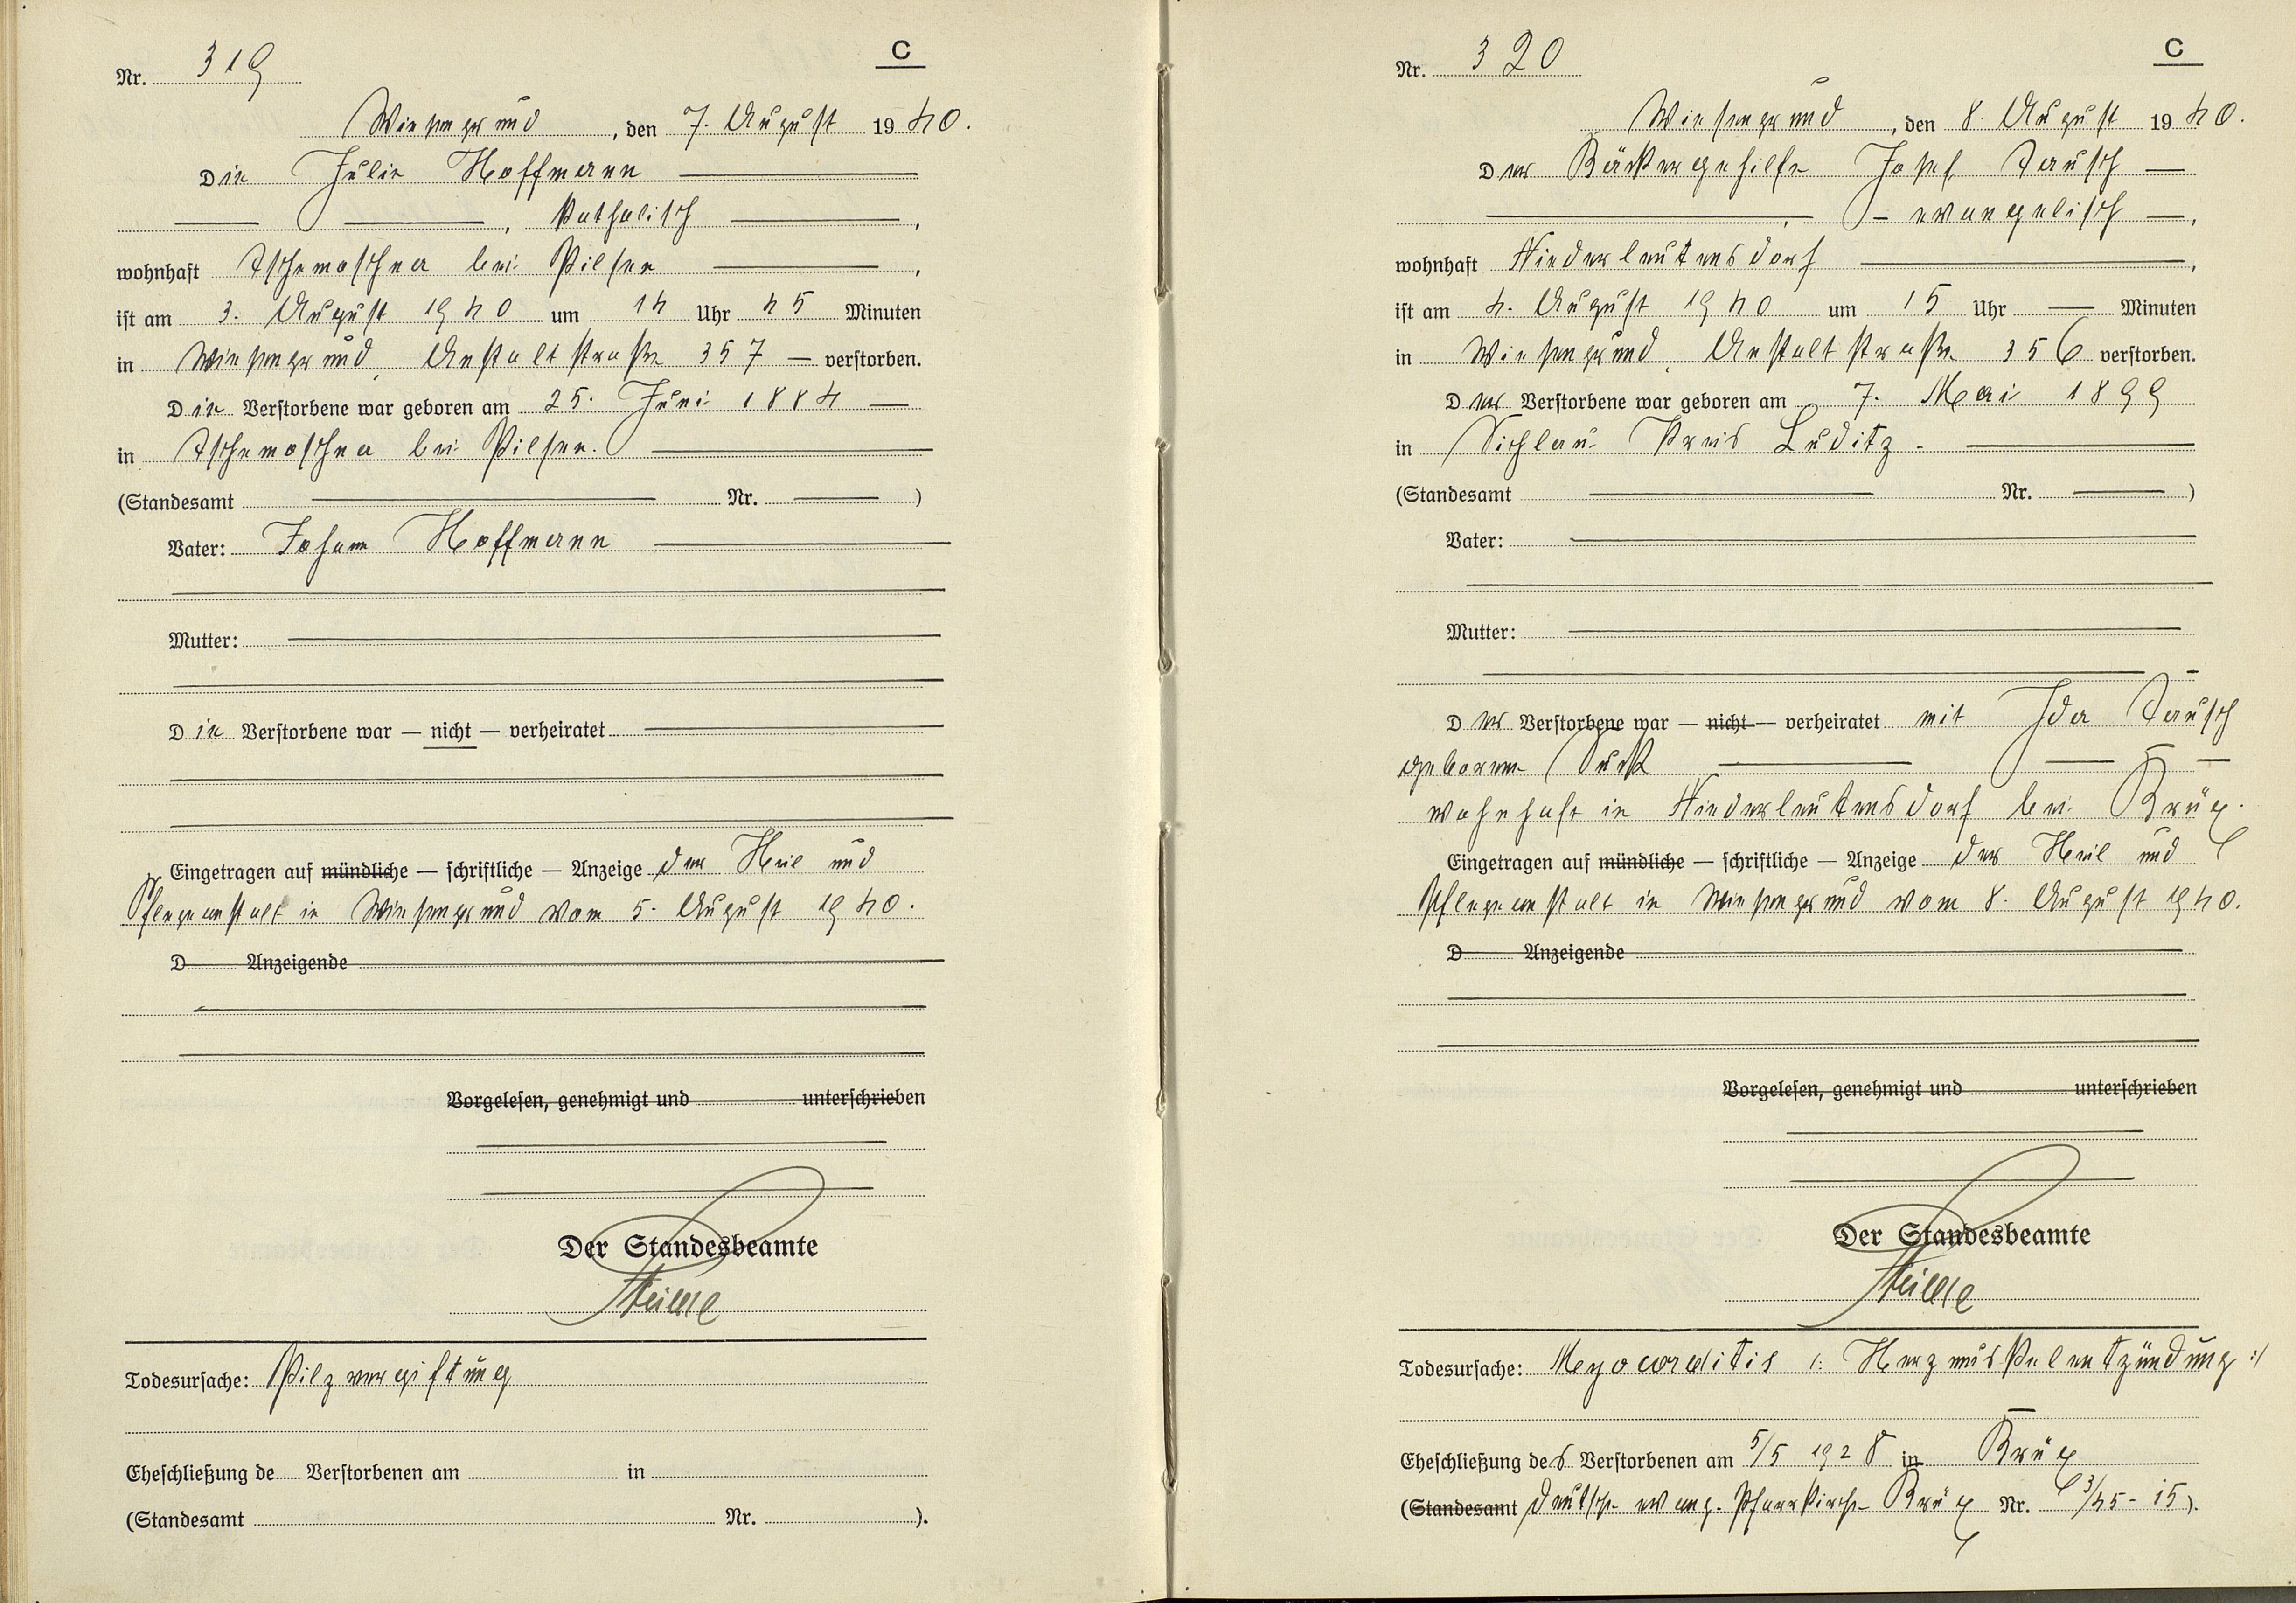 C
Nr. 319
Wiesengrund, den 7. August 1940.
Die Julie Hoffmann
, katholisch,
wohnhaft Tschemoschna bei Pilsen,
ist am 3. August 1940 um 14 Uhr 45 Minuten
in Wiesengrund, Anstaltstraße 357 — verstorben.
Die Verstorbene war geboren am 25. Juni 1884 —
in Tschemoschna bei Pilsen.
(Standesamt Nr. )
Vater: Johann Hoffmann
Mutter:
Die Verstorbene war — nicht — verheiratet
Eingetragen auf mündliche — schriftliche — Anzeige der Heil und
Pflegeanstalt in Wiesengrund vom 5. August 1940.
D Anzeigende
Vorgelesen, genehmigt und unterschrieben
Der Standesbeamte
Todesursache: Pilzvergiftung
Eheschließung de Verstorbenen am in
(Standesamt Nr. ).
C
Nr. 320
Wiesengrund, den 8. August 1940.
Der Bäckergehilfe Josef Tausch —
, — evangelisch —,
wohnhaft Niederleutensdorf,
ist am 4. August 1940 um 15 Uhr — Minuten
in Wiesengrund, Anstaltstraße 356 verstorben.
Der Verstorbene war geboren am 7. Mai 1899
in Sichlau Kreis Luditz.
(Standesamt Nr. )
Vater:
Mutter:
Der Verstorbene war — nicht — verheiratet mit Ida Tausch
geborene
wohnhaft in Niederleutensdorf bei Brüx.
Eingetragen auf mündliche — schriftliche — Anzeige der Heil und
Pflegeanstalt in Wiesengrund vom 8. August 1940.
D Anzeigende
Vorgelesen, genehmigt und unterschrieben
Der Standesbeamte
Todesursache: Myocarditis /: Herzmuskelentzündung :/
Eheschließung des Verstorbenen am 5/5 1928 in Brüx
(Standesamt deutsche evang. Pfarrkirche Brüx Nr. 3/45 - 15).